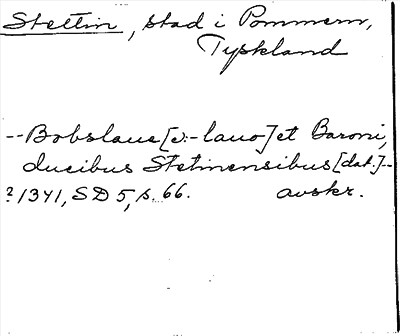 Stettin, stad i Pommern,
Tyskland
--Bobslaue [v:-lauo] et Baroni,
ducibus Stetinensibus [dat.]--
? 1341, SD 5, s. 66. avskr.